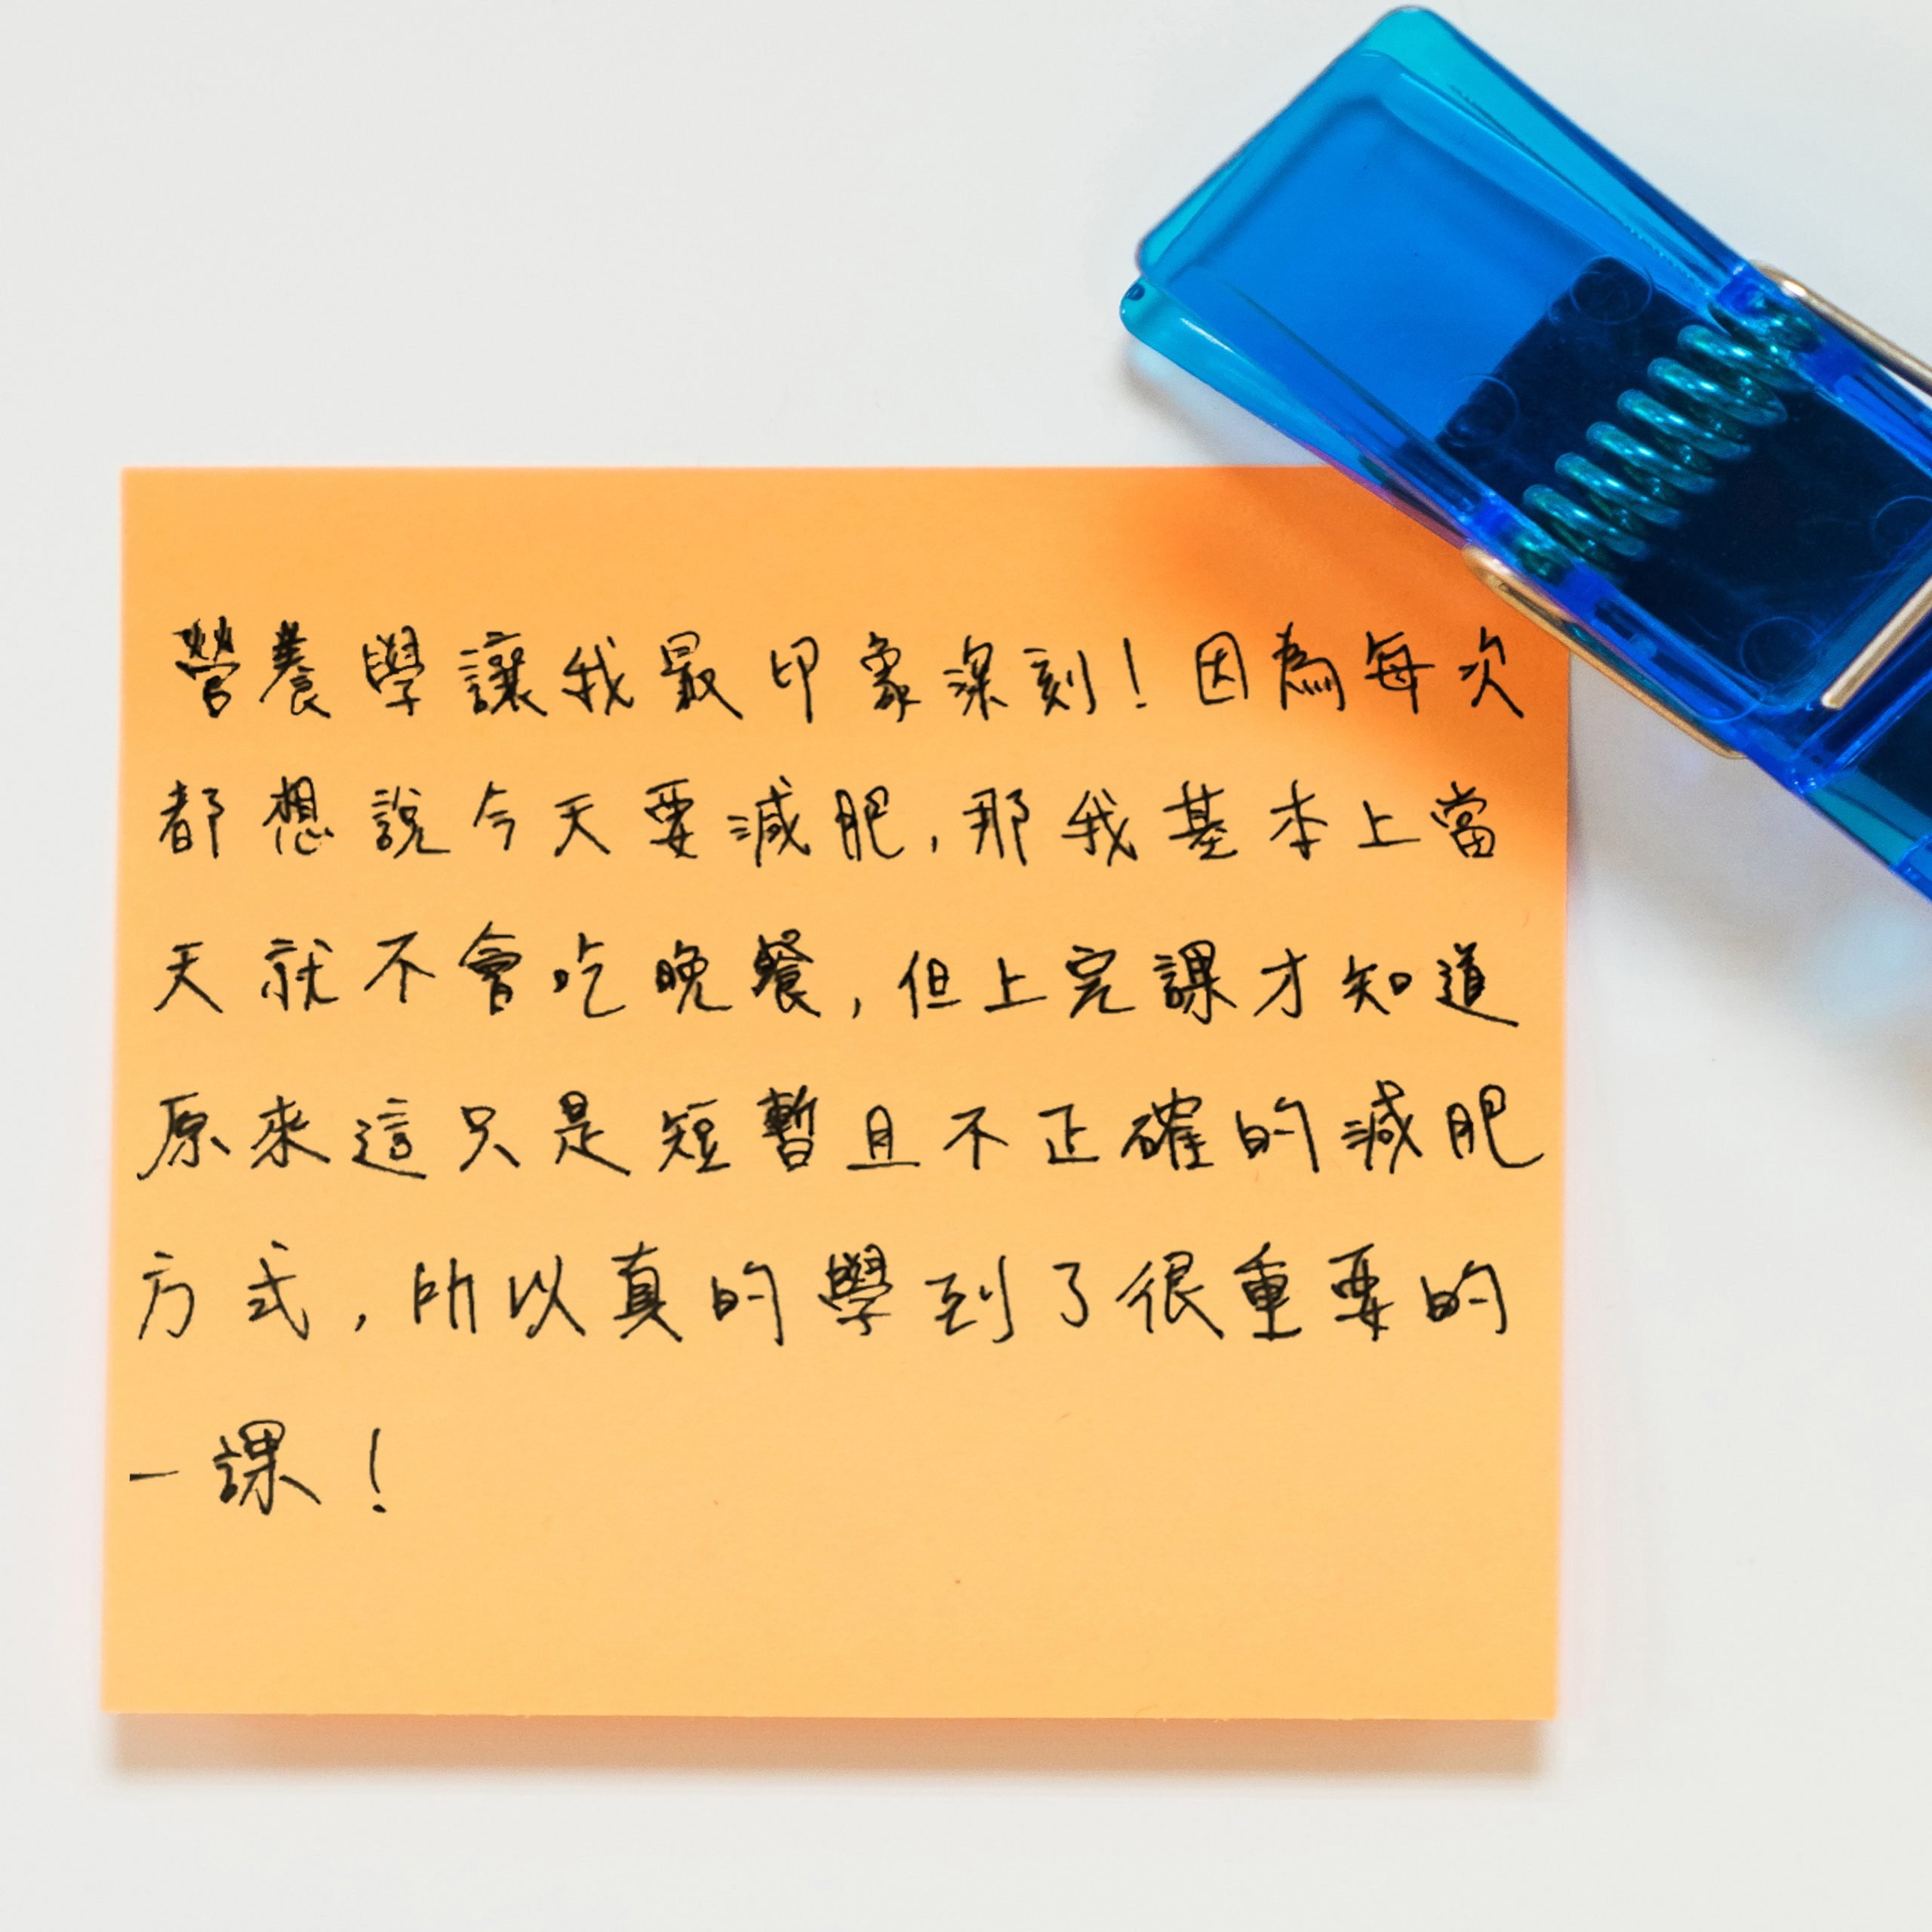 營養學讓我最印象深刻！因為每次
都想說今天要減肥，那我基本上當
天就不會吃晚餐，但上完課才知道
原來這只是短暫且不正確的減肥
方式，所以真的學到了很重要的
一課！